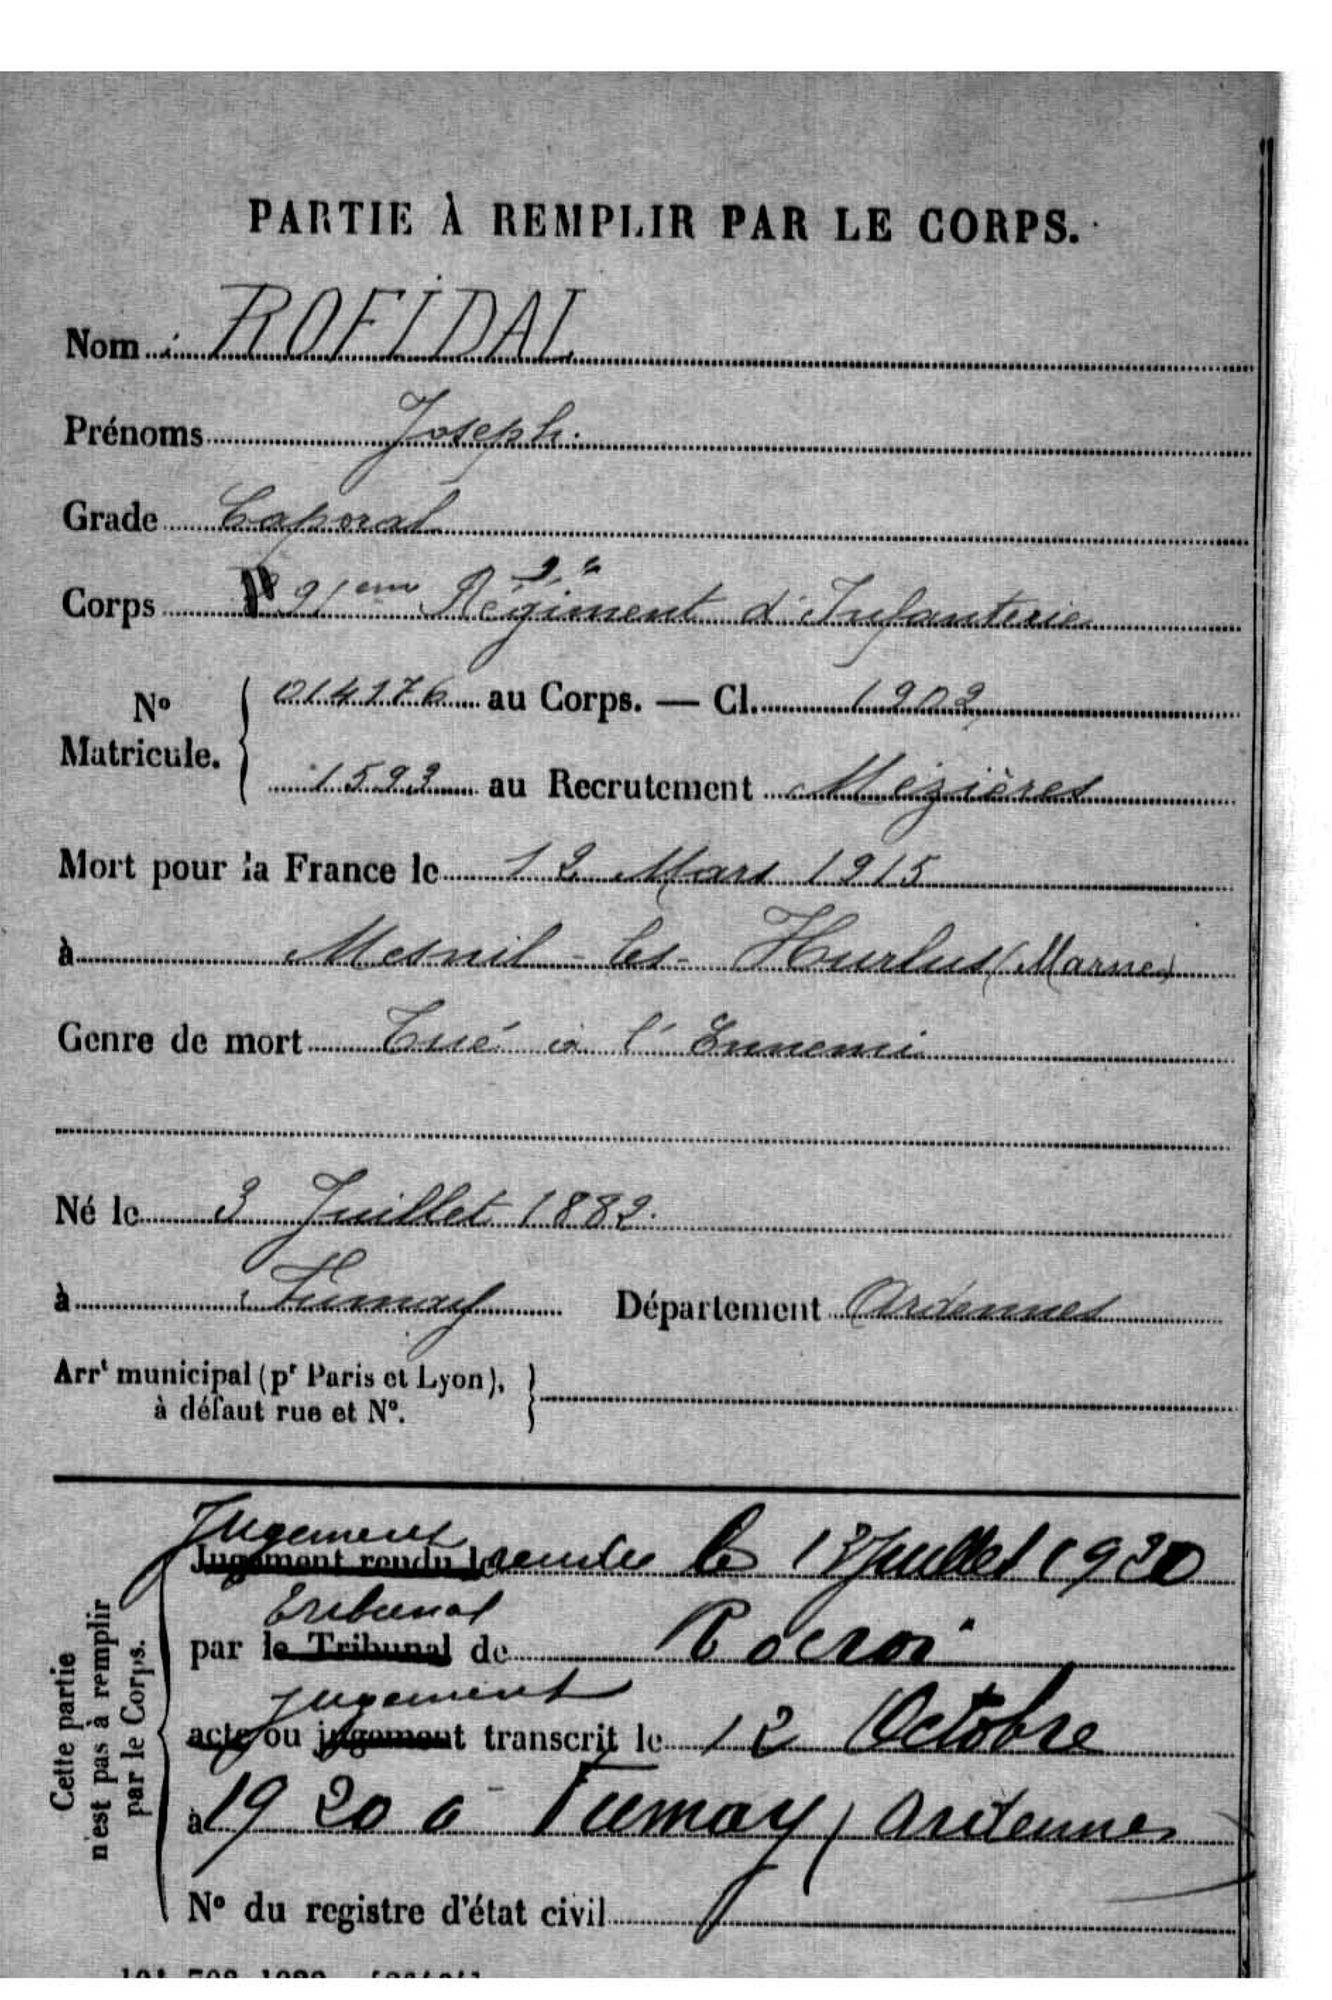 PARTIE À REMPLIR PAR LE CORPS.
Nom : ROFIDAL
Prénoms Joseph.
Grade Caporal
Corps 91em Régiment d'Infanterie
N° Matricule. { 014176 au Corps. — Cl. 1902
1593 au Recrutement Mézières
Mort pour la France le 12 Mars 1915
à Mesnil-les-Hurlus (Marne)
Genre de mort Tué à l'Ennemi
Né le 3 Juillet 1882.
à Fumay Département Ardennes
Arrt municipal (pr Paris et Lyon), à défaut rue et N°.
Jugement
Jugement rendu le rendu le 13 Juillet 1920
Tribunal
par le Tribunal de Rocroi
jugement
acte ou jugement transcrit le 12 Octobre
à 1920 à Fumay (Ardennes
N° du registre d'état civil
Cette partie n'est pas à remplir par le Corps.